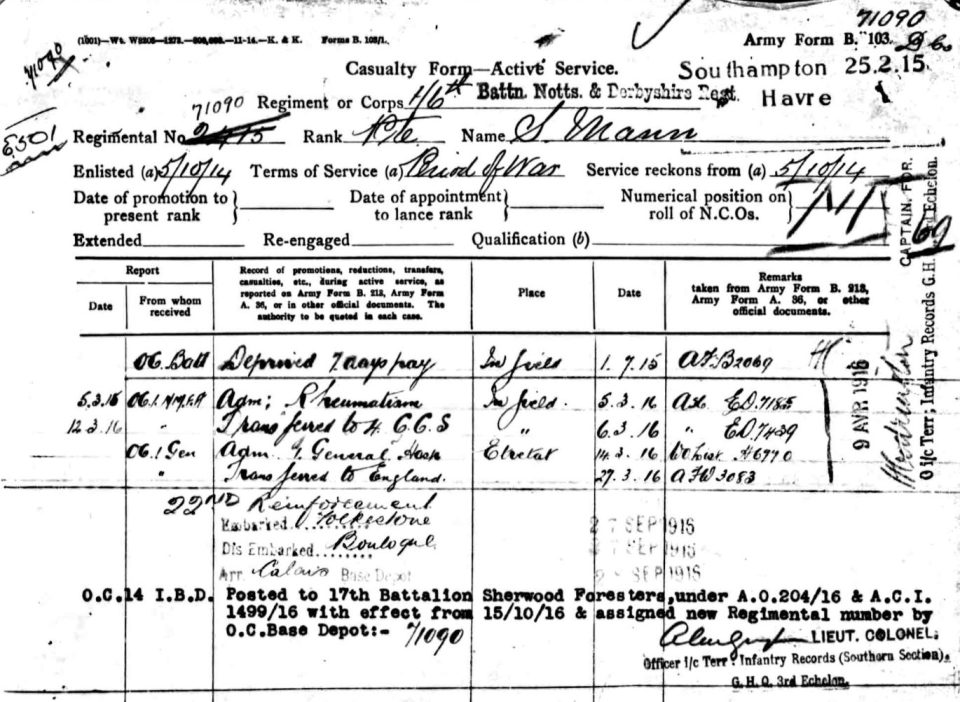 71090
(1801)—Wt. W3206—1273.—500,000.—11-14.—K. & K. Forms B. 103/1.
Army Form B. 103.
71090
Casualty Form—Active Service.
Southampton 25.2.15
71090 Regiment or Corps 1/6th Battn. Notts. & Derbyshire Regt. Havre
Regimental No. 2415 Rank Pte Name S. Mann
Enlisted (a) 5/10/14 Terms of Service (a) Period of War Service reckons from (a) 5/10/14
Date of promotion to present rank } Date of appointment to lance rank } Numerical position on roll of N.C.Os. }
Extended Re-engaged Qualification (b)
Report
Date From whom received
Record of promotions, reductions, transfers, casualties, etc., during active service, as reported on Army Form B. 213, Army Form A. 36, or in other official documents. The authority to be quoted in each case.
Place
Date
Remarks taken from Army Form B. 213, Army Form A. 36, or other official documents.
OC. Batt Deprived 7 days pay In field 1.7.15 AFB2069
5.3.16 Adm; Rheumatism In field. 5.3.16 ED.7185
12.3.16 " Transferred to 4 C.C.S " 6.3.16 " ED.7439
OC. 1 Gen Adm 1 General Hosp Etretat 14.3.16 H6770
" Transferred to England. 27.3.16 AFW3083
22ND Reinforcement
Embarked Folkestone 27 SEP 1916
Dis Embarked Boulogne 27 SEP 1916
Arr. Calais Base Depot SEP 1916
O.C.14 I.B.D. Posted to 17th Battalion Sherwood Foresters,under A.O.204/16 & A.C.I.
1499/16 with effect from 15/10/16 & assigned new Regimental number by
O.C.Base Depot:- 71090
LIEUT. COLONEL.
Officer i/c Terr. Infantry Records (Southern Section).
G.H.Q. 3rd Echelon.
9 APR 1916
CAPTAIN. FOR
O i/c Terr; Infantry Records G.H. 3rd Echelon.